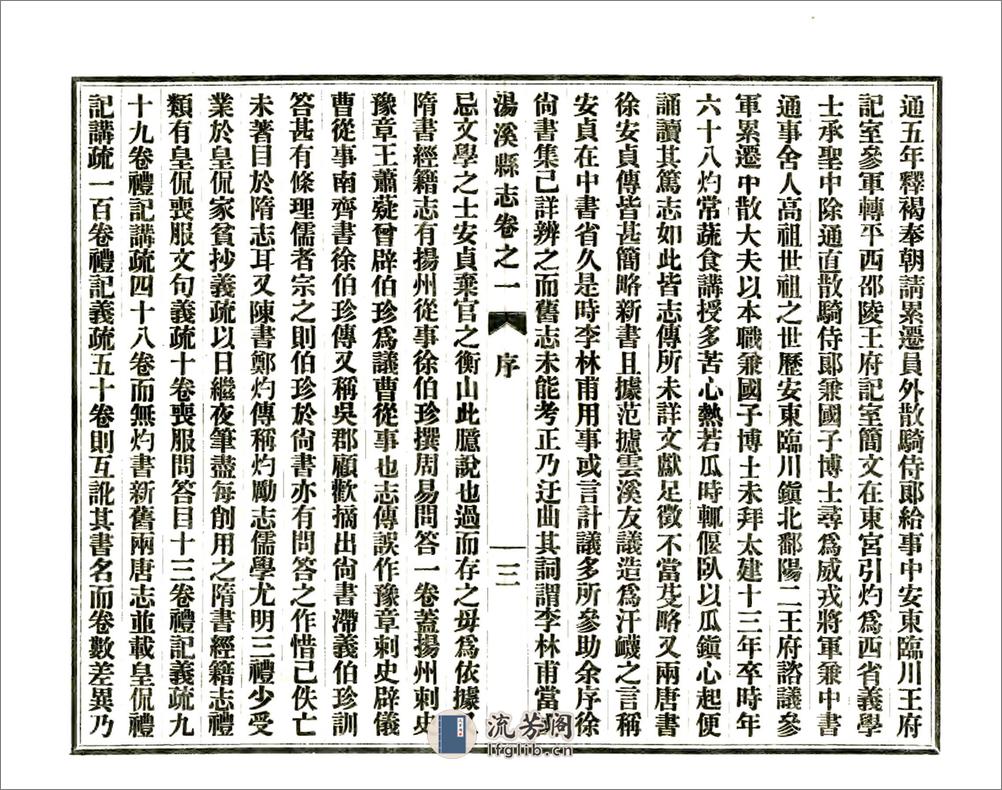 通五年釋褐奉朝請累遷員外散騎侍郎給事中安東臨川王府
記室參軍轉平西邵陵王府記室簡文在東宮引灼爲西省義學
士承聖中除通直散騎侍郎兼國子博士尋爲威戎將軍兼中書
通事舍人高祖世祖之世歷安東臨川鎭北鄱陽二王府諮議參
軍累遷中散大夫以本職兼國子博士未拜太建十三年卒時年
六十八灼常蔬食講授多苦心熱若瓜時輒偃臥以瓜鎭心起便
誦讀其篤志如此皆志傳所未詳文獻足徵不當芟略又兩唐書
徐安貞傳皆甚簡略新書且據范攄雲溪友議造爲汗衊之言稱
安貞在中書省久是時李林甫用事或言計議多所參助余序徐
尙書集已詳辨之而舊志未能考正乃迂曲其詞謂李林甫當
湯溪縣志卷之一 序 三
忌文學之士安貞棄官之衡山此臆說也過而存之毋爲依據
隋書經籍志有揚州從事徐伯珍撰周易問答一卷蓋揚州刺史
豫章王蕭薿曾辟伯珍爲議曹從事也志傳誤作豫章刺史辟儀
曹從事南齊書徐伯珍傳又稱吳郡顧歡摘出尙書滯義伯珍訓
答甚有條理儒者宗之則伯珍於尙書亦有問答之作惜已佚亡
未著目於隋志耳又陳書鄭灼傳稱灼勵志儒學尤明三禮少受
業於皇侃家貧抄義疏以日繼夜筆盡每削用之隋書經籍志禮
類有皇侃喪服文句義疏十卷喪服問答目十三卷禮記義疏九
十九卷禮記講疏四十八卷而無灼書新舊兩唐志並載皇侃禮
記講疏一百卷禮記義疏五十卷則互訛其書名而卷數差異乃
流芳閣
lfglib.cn